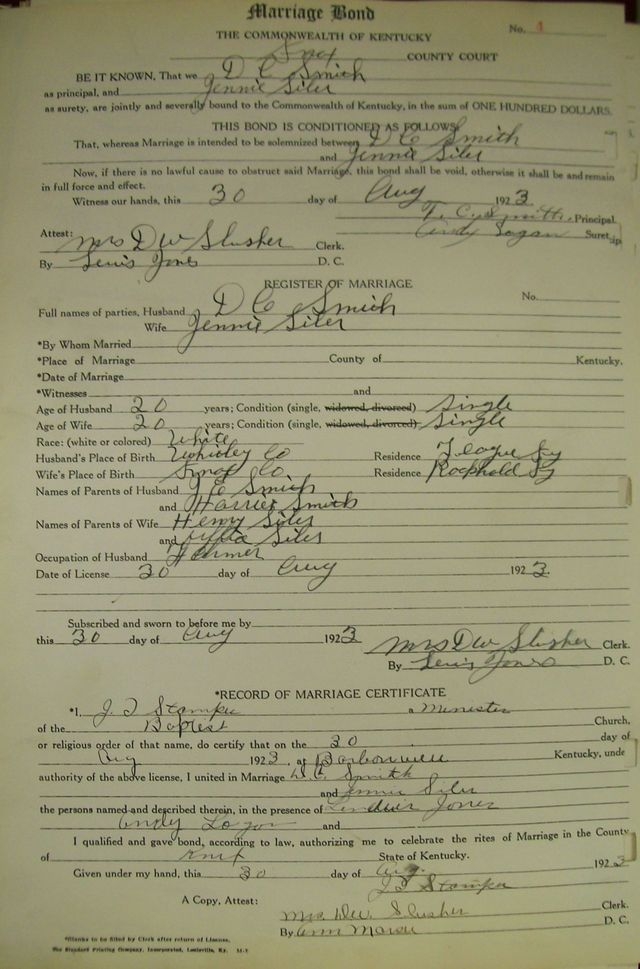 Marriage Bond
No. 1
THE COMMONWEALTH OF KENTUCKY
Knox COUNTY COURT
BE IT KNOWN, That we D C Smith
as principal, and Jennie Siler
as surety, are jointly and severally bound to the Commonwealth of Kentucky, in the sum of ONE HUNDRED DOLLARS.
THIS BOND IS CONDITIONED AS FOLLOWS:
That, whereas Marriage is intended to be solemnized between D C Smith
and Jennie Siler
Now, if there is no lawful cause to obstruct said Marriage, this bond shall be void, otherwise it shall be and remain
in full force and effect.
Witness our hands, this 30 day of Aug 1923
C. Smith. Principal
Attest: Andy Logan Surety
Mrs D W Slusher Clerk.
By Lewis Jones D. C.
REGISTER OF MARRIAGE
No.
Full names of parties, Husband D C Smith
Wife Jennie Siler
*By Whom Married
*Place of Marriage County of Kentucky.
*Date of Marriage
*Witnesses and
Age of Husband 20 years; Condition (single, widowed, divorced) Single
Age of Wife 20 years; Condition (single, widowed, divorced) Single
Race: (white or colored) White
Husband's Place of Birth Whitley Co Residence Ky
Wife's Place of Birth Knox Co Residence Rockhold Ky
Names of Parents of Husband Smith
and Harriet Smith
Names of Parents of Wife Henry Siler
and Siler
Occupation of Husband Farmer
Date of License 30 day of Aug 1923.
Subscribed and sworn to before me by
this 30 day of Aug 1923
Mrs D W Slusher Clerk.
By Lewis Jones D. C.
*RECORD OF MARRIAGE CERTIFICATE
*I, J. T Stamper a Minister
of the Baptist Church,
or religious order of that name, do certify that on the 30 day of
Aug 1923, at Barbourville Kentucky, unde
authority of the above license, I united in Marriage D. C. Smith
and Jennie Siler
the persons named and described therein, in the presence of Jones
Andy Logan and
I qualified and gave bond, according to law, authorizing me to celebrate the rites of Marriage in the County
of Knox State of Kentucky.
Given under my hand, this 30 day of Aug. 1923
J T Stamper
A Copy, Attest:
Mrs. D.W. Slusher Clerk.
By D. C.
*Blanks to be filled by Clerk after return of License.
The Standard Printing Company, Incorporated, Louisville, Ky.